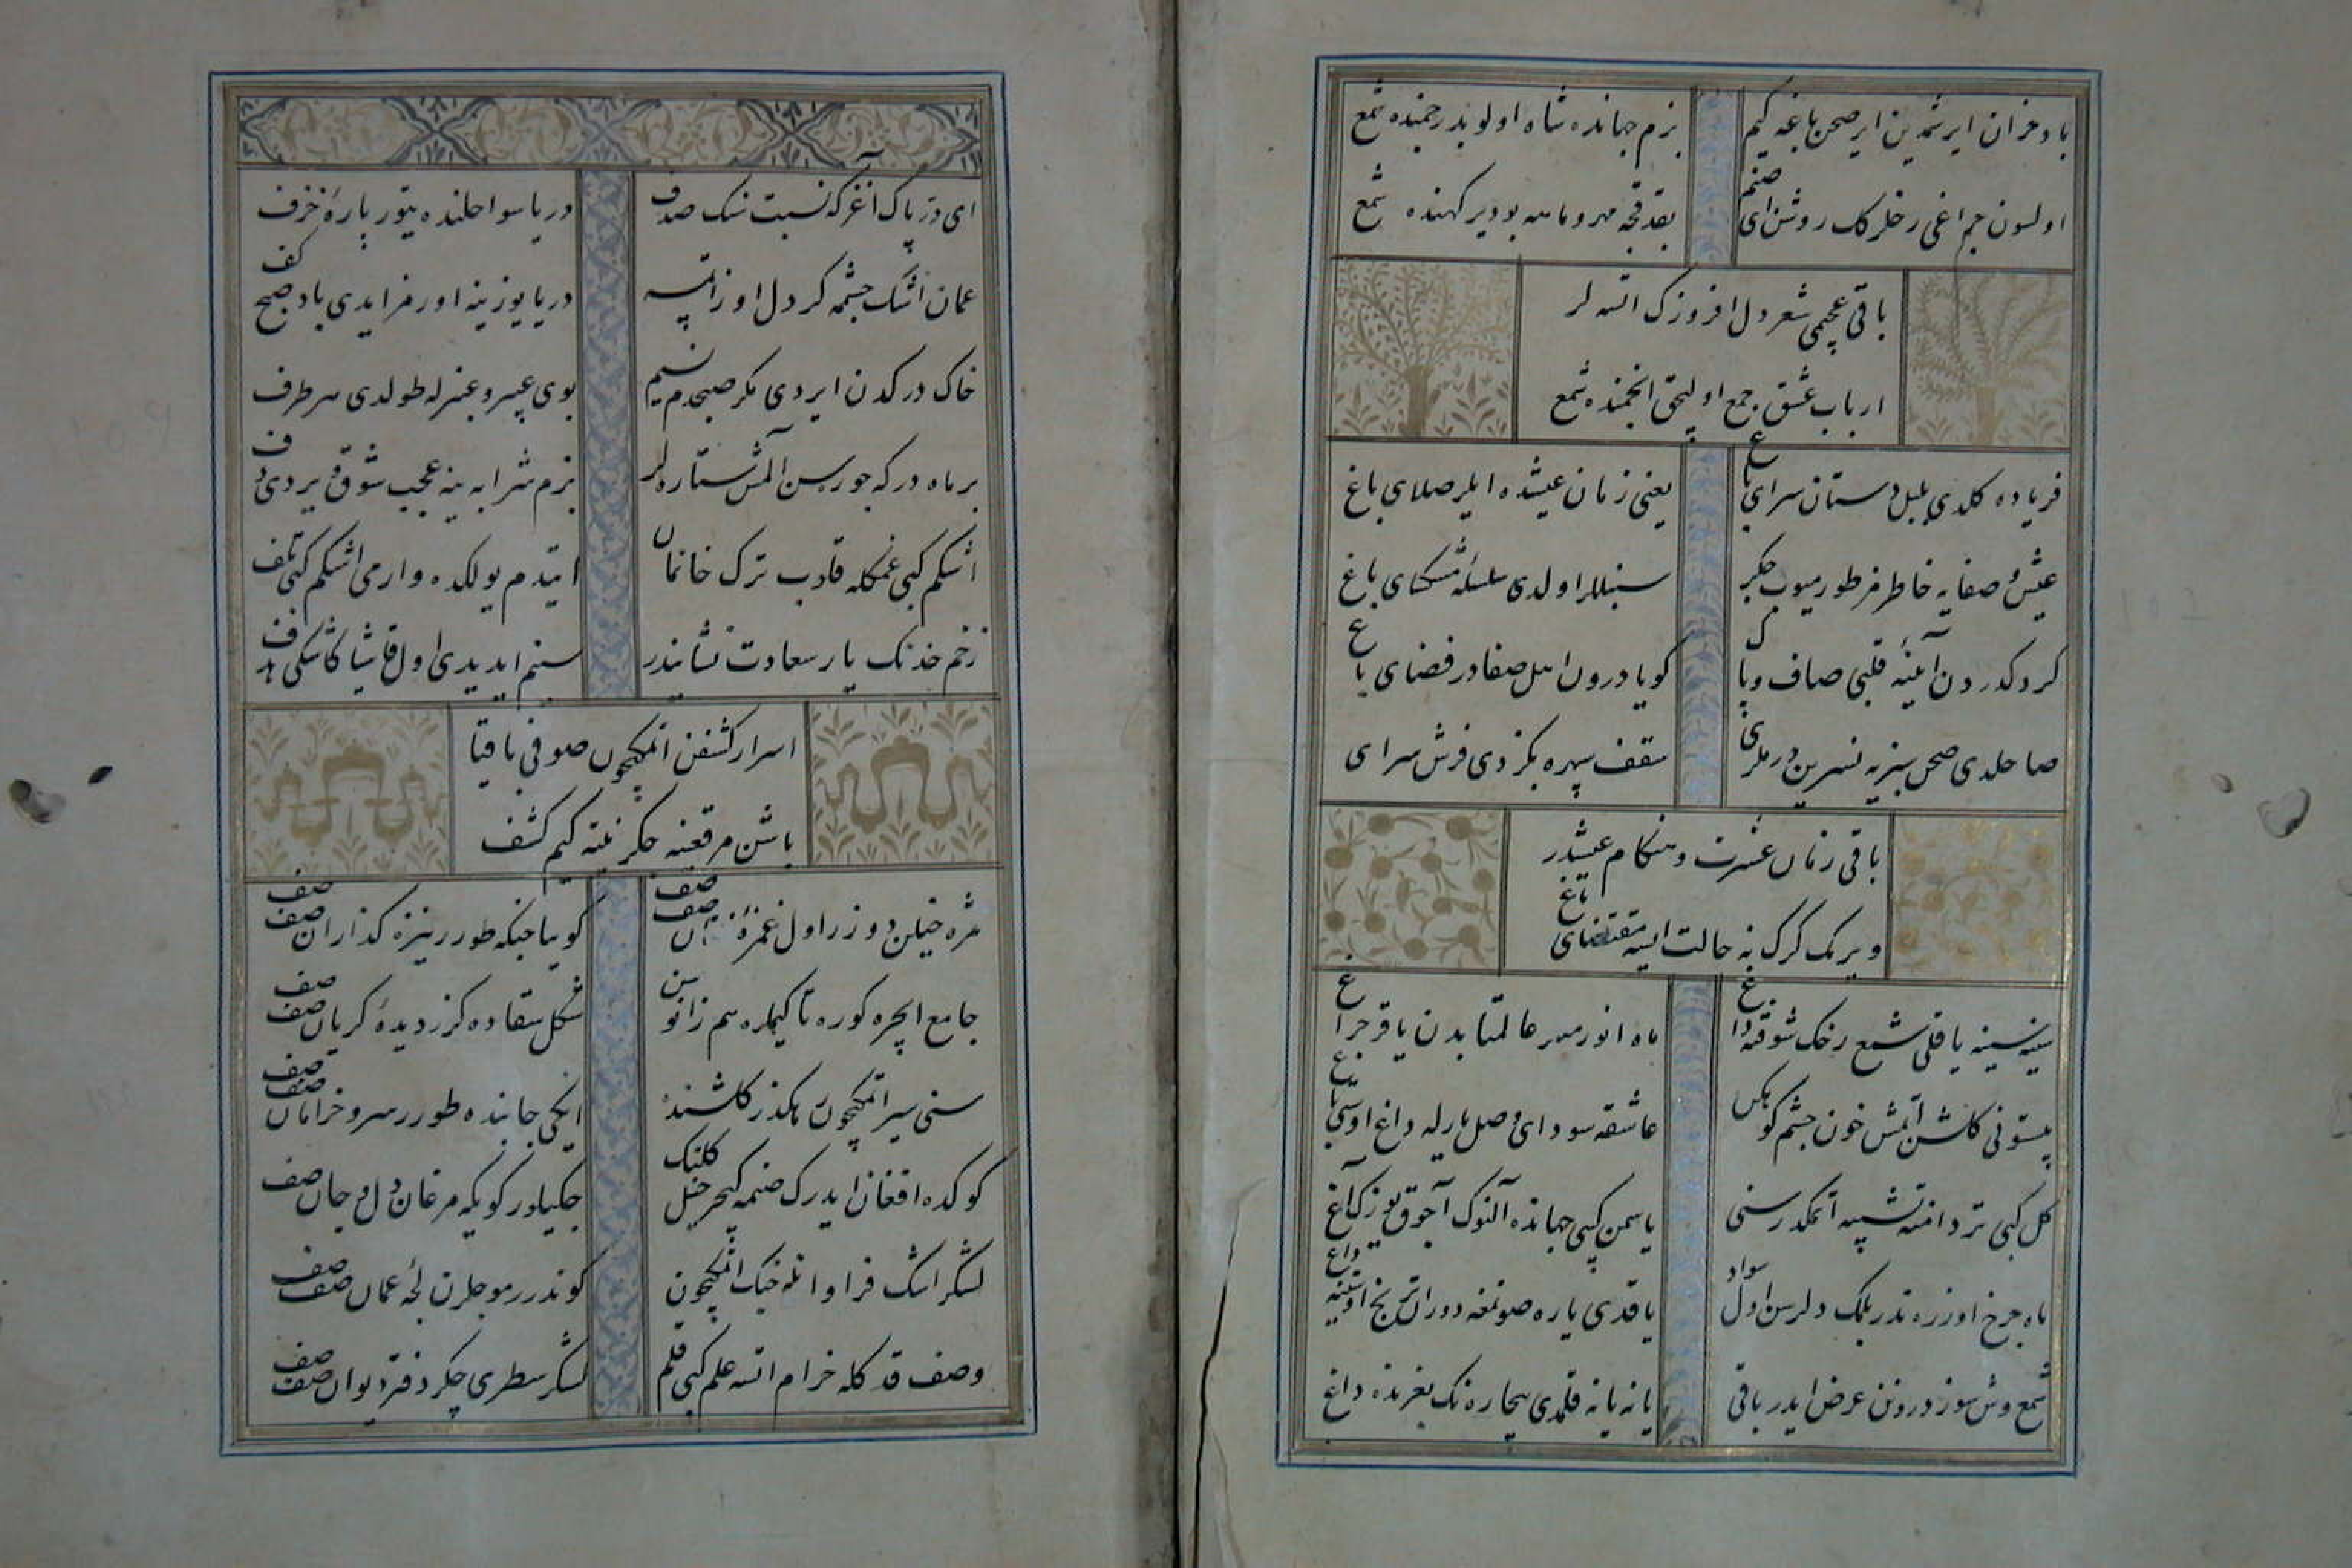 باد خزان ایرشمدین ایر صحن باغه کیم
بزم جهانده شاه اولوبدر چمنده شمع
اولسون چراغی رخلرک روشن ای صنم
یقدقجه مهر و ماهه بو دیر کهنده شمع
باقی عجمی شعر دل افروزک اتسه لر
ارباب عشق جمع اولیجق انجمنده شمع
فریاده کلدی بلبل دستان سرای باغ
یعنی زمان عیشده ایلر صلای باغ
عیش و صفایه خاطر طورمیوب چکر
سنبللر اولدی سلسلهٔ مشکسای باغ
کرد کدردن آینهٔ قلبی صاف و پاک
کویا درون اهل صفادر فضای باغ
صاچلدی صحن سبزیه نسرین و
سقف سپهره بکزدی فرش سرای
باقی زمان عشرت و هنکام عیشدر
ویرمک کرک نه حالت ایسه مقتضای باغ
سینه سینه یاقلی شمع رخک شوقنه داغ
ماه انور عالمتابدن یاقر چراغ
بیستونی کلشن اتمش خون چشم کوهکن
عاشقه سودای وصل یارله داغ اوستی باغ
کل کبی تر دامنه تشبیه اتمکدر سنی
یاسمن کبی جهانده آلنوک آچوق یوزک آغ
ماه چرخ اوزره ندر بلمک دلرسن اول سواد
یاقدی یاره صونمغه دوران ترنج اوستنه داغ
شمع وش سوز درونن عرض ایدر باقی
یانه یانه قلمدی بیچاره نک بغرنده داغ
ای در پاک آغزکه نسبت صدف
دریا سواحلنده یتور پارهٔ خزف
عمان اشک چشمه کر دل اوزاتمسه
دریا یوزینه اورمز ایدی باد صبح کف
خاک درکدن ایردی مکر صبحدم نسیم
بوی عبیر و عنبرله طولدی هر طرف
بر ماه در که جوره سن المش ستاره لر
بزم شرابه ینه عجب شوق یردی دف
اشکم کبی غمکله قلوب ترک خانمان
ایتدم یولکده وارمی اشکم کبی تلف
زخم خدنک یار سعادت نشانیدر
سینم ایدیدی اول قاشیا کاشکی هدف
اسرار کشفن اتمکیچون صوفی باقیا
باشن مرقعینه چکر نیته کیم کشف
مژه خیلن دوزر اول غمزهٔ صف صف
کویا جنکه طورر نیزه کذاران صف صف
جامع ایچره کوره تا کیمله هم زانو سن
شکل سقاده کزر دیدهٔ کریان صف صف
سنی سیر اتمکیچون کلشنده
ایکی جانبده طورر سرو خرامان صف صف
کوکده افغان ایدرک صنمه کچر خیل کلنک
چکیلور کویکه مرغان دل و جان صف
لشکر اشک فراوانله جنک اتمکیچون
کوندرر موجلرن لجهٔ عمان صف صف
وصف قدکله خرام اتسه علم کبی قلم
لشکر سطری چکر دفتر دیوان صف صف